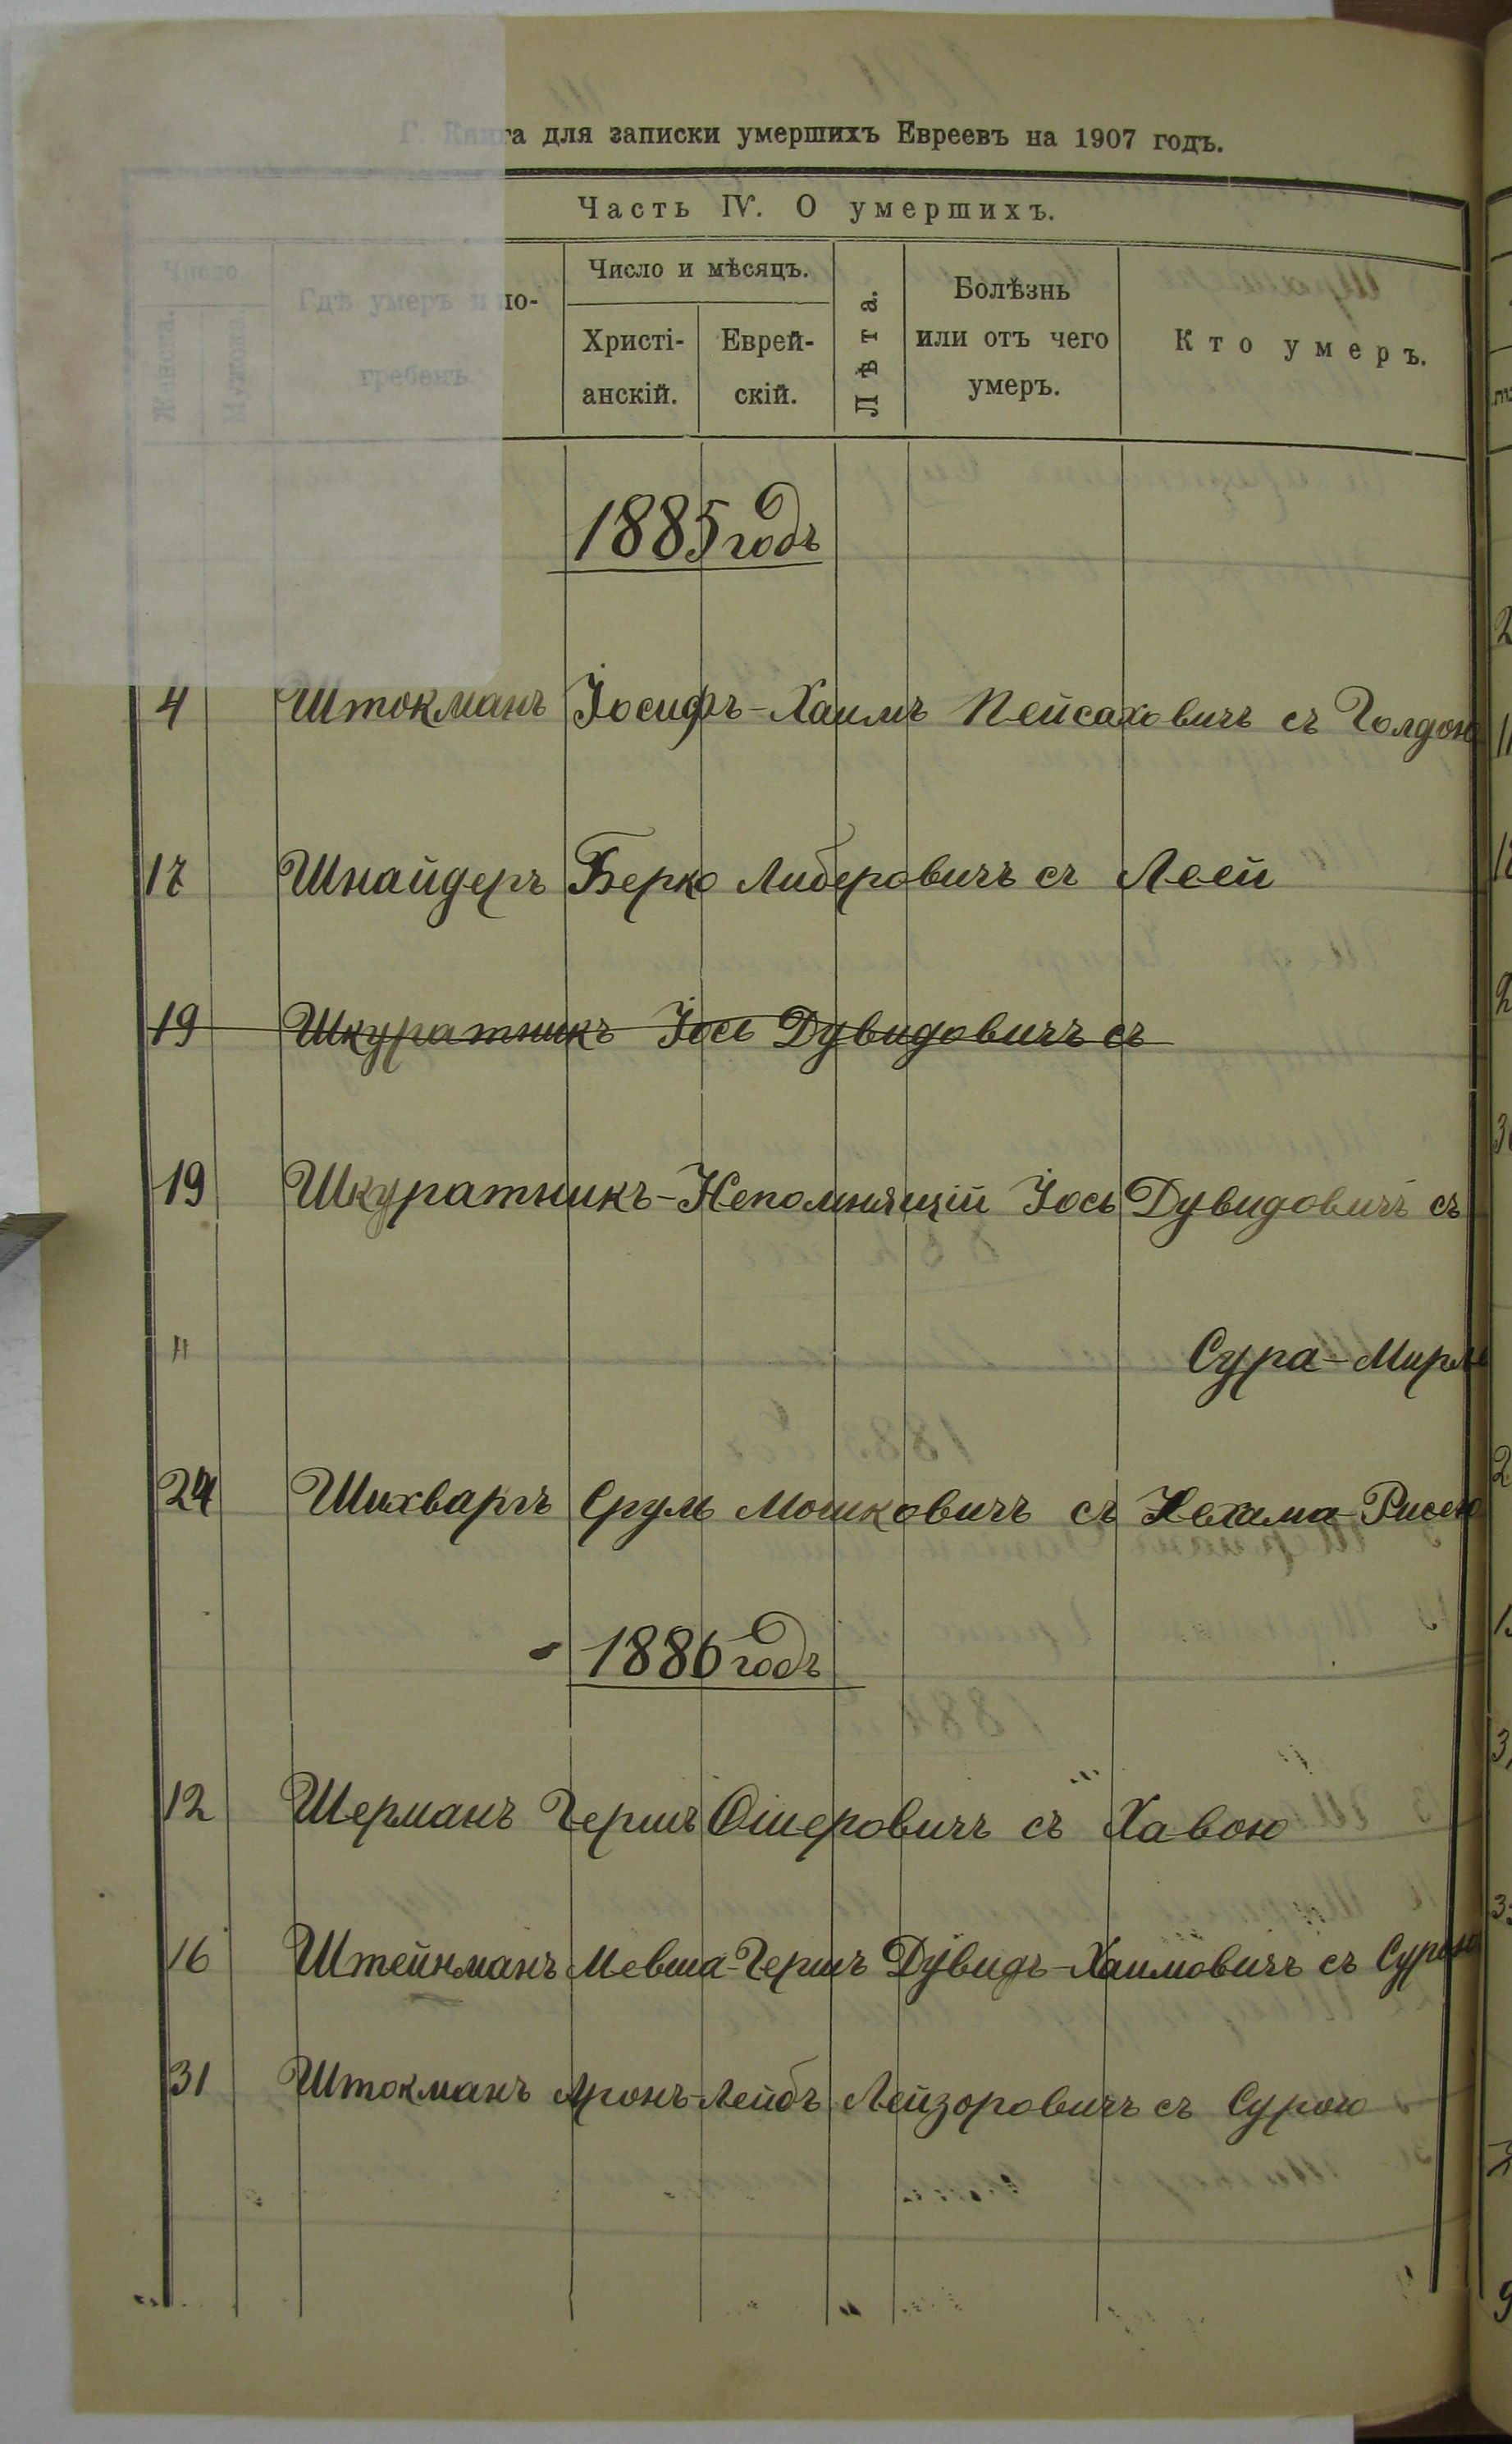 Г. Книга для записки умершихъ Евреевъ на 1907 годъ.
Часть IV. О умершихъ.
Число.
Женска.
Мужа.
Гдѣ умеръ и по-
гребенъ
Число и мѣсяцъ.
Христі-
анскій.
Еврей-
скій.
Лѣта.
Болѣзнь
или отъ чего
умеръ.
Кто умеръ.
1885 годъ
4 Штокманъ Іосифъ-Хаимъ Пейсаховичъ съ Голдою
17 Шнайдеръ Берко Либеровичъ съ Леей
19 Шкуратникъ Іось Дувидовичъ съ
19 Шкуратникъ-Непомнящій Іось Дувидовичъ съ
" Сура-Мирле
24 Шихваргъ Сруль Мошковичъ съ Нехама-Рисею
1886 годъ
12 Шерманъ Гершъ Ошеровичъ съ Хавою
16 Штейнманъ Мевша-Гершъ Дувидъ-Хаимовичъ съ Сурою
31 Штокманъ Аронъ-Лейбъ Лейзоровичъ съ Сурою